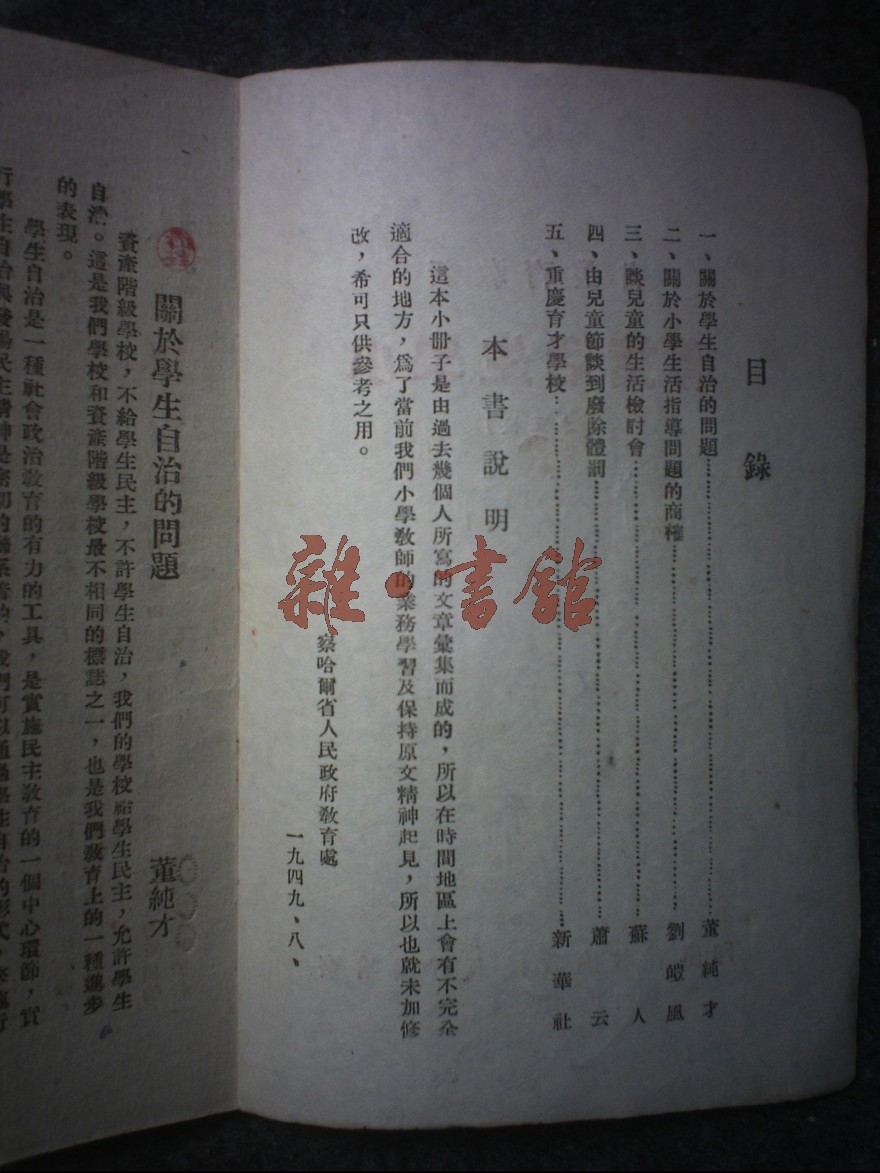 目錄
一、關於學生自治的問題……董純才
二、關於小學生活指導問題的商榷……劉皚風
三、談兒童的生活檢討會……蘇人
四、由兒童節談到廢除體罰……蕭云
五、重慶育才學校……新華社
本書說明
這本小冊子是由過去幾個人所寫的文章彙集而成的，所以在時間地區上會有不完全
適合的地方，爲了當前我們小學教師的業務學習及保持原文精神起見，所以也就未加修
改，希可只供參考之用。
察哈爾省人民政府教育處
一九四九、八、
雜·書館
關於學生自治的問題
董純才
資產階級學校，不給學生民主，不許學生自治，我們的學校給學生民主，允許學生
自治。這是我們學校和資產階級學校最不相同的標誌之一，也是我們教育上的一種進步
的表現。
學生自治是一種社會政治教育的有力的工具，是實施民主教育的一個中心環節，實
行學生自治與發揚民主精神是密切的聯系着的，我們可以通過學生自治的形式，來進行